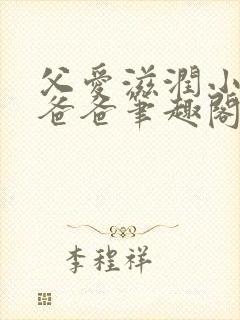 父爱滋润小
爸爸笔趣阁
李程祥